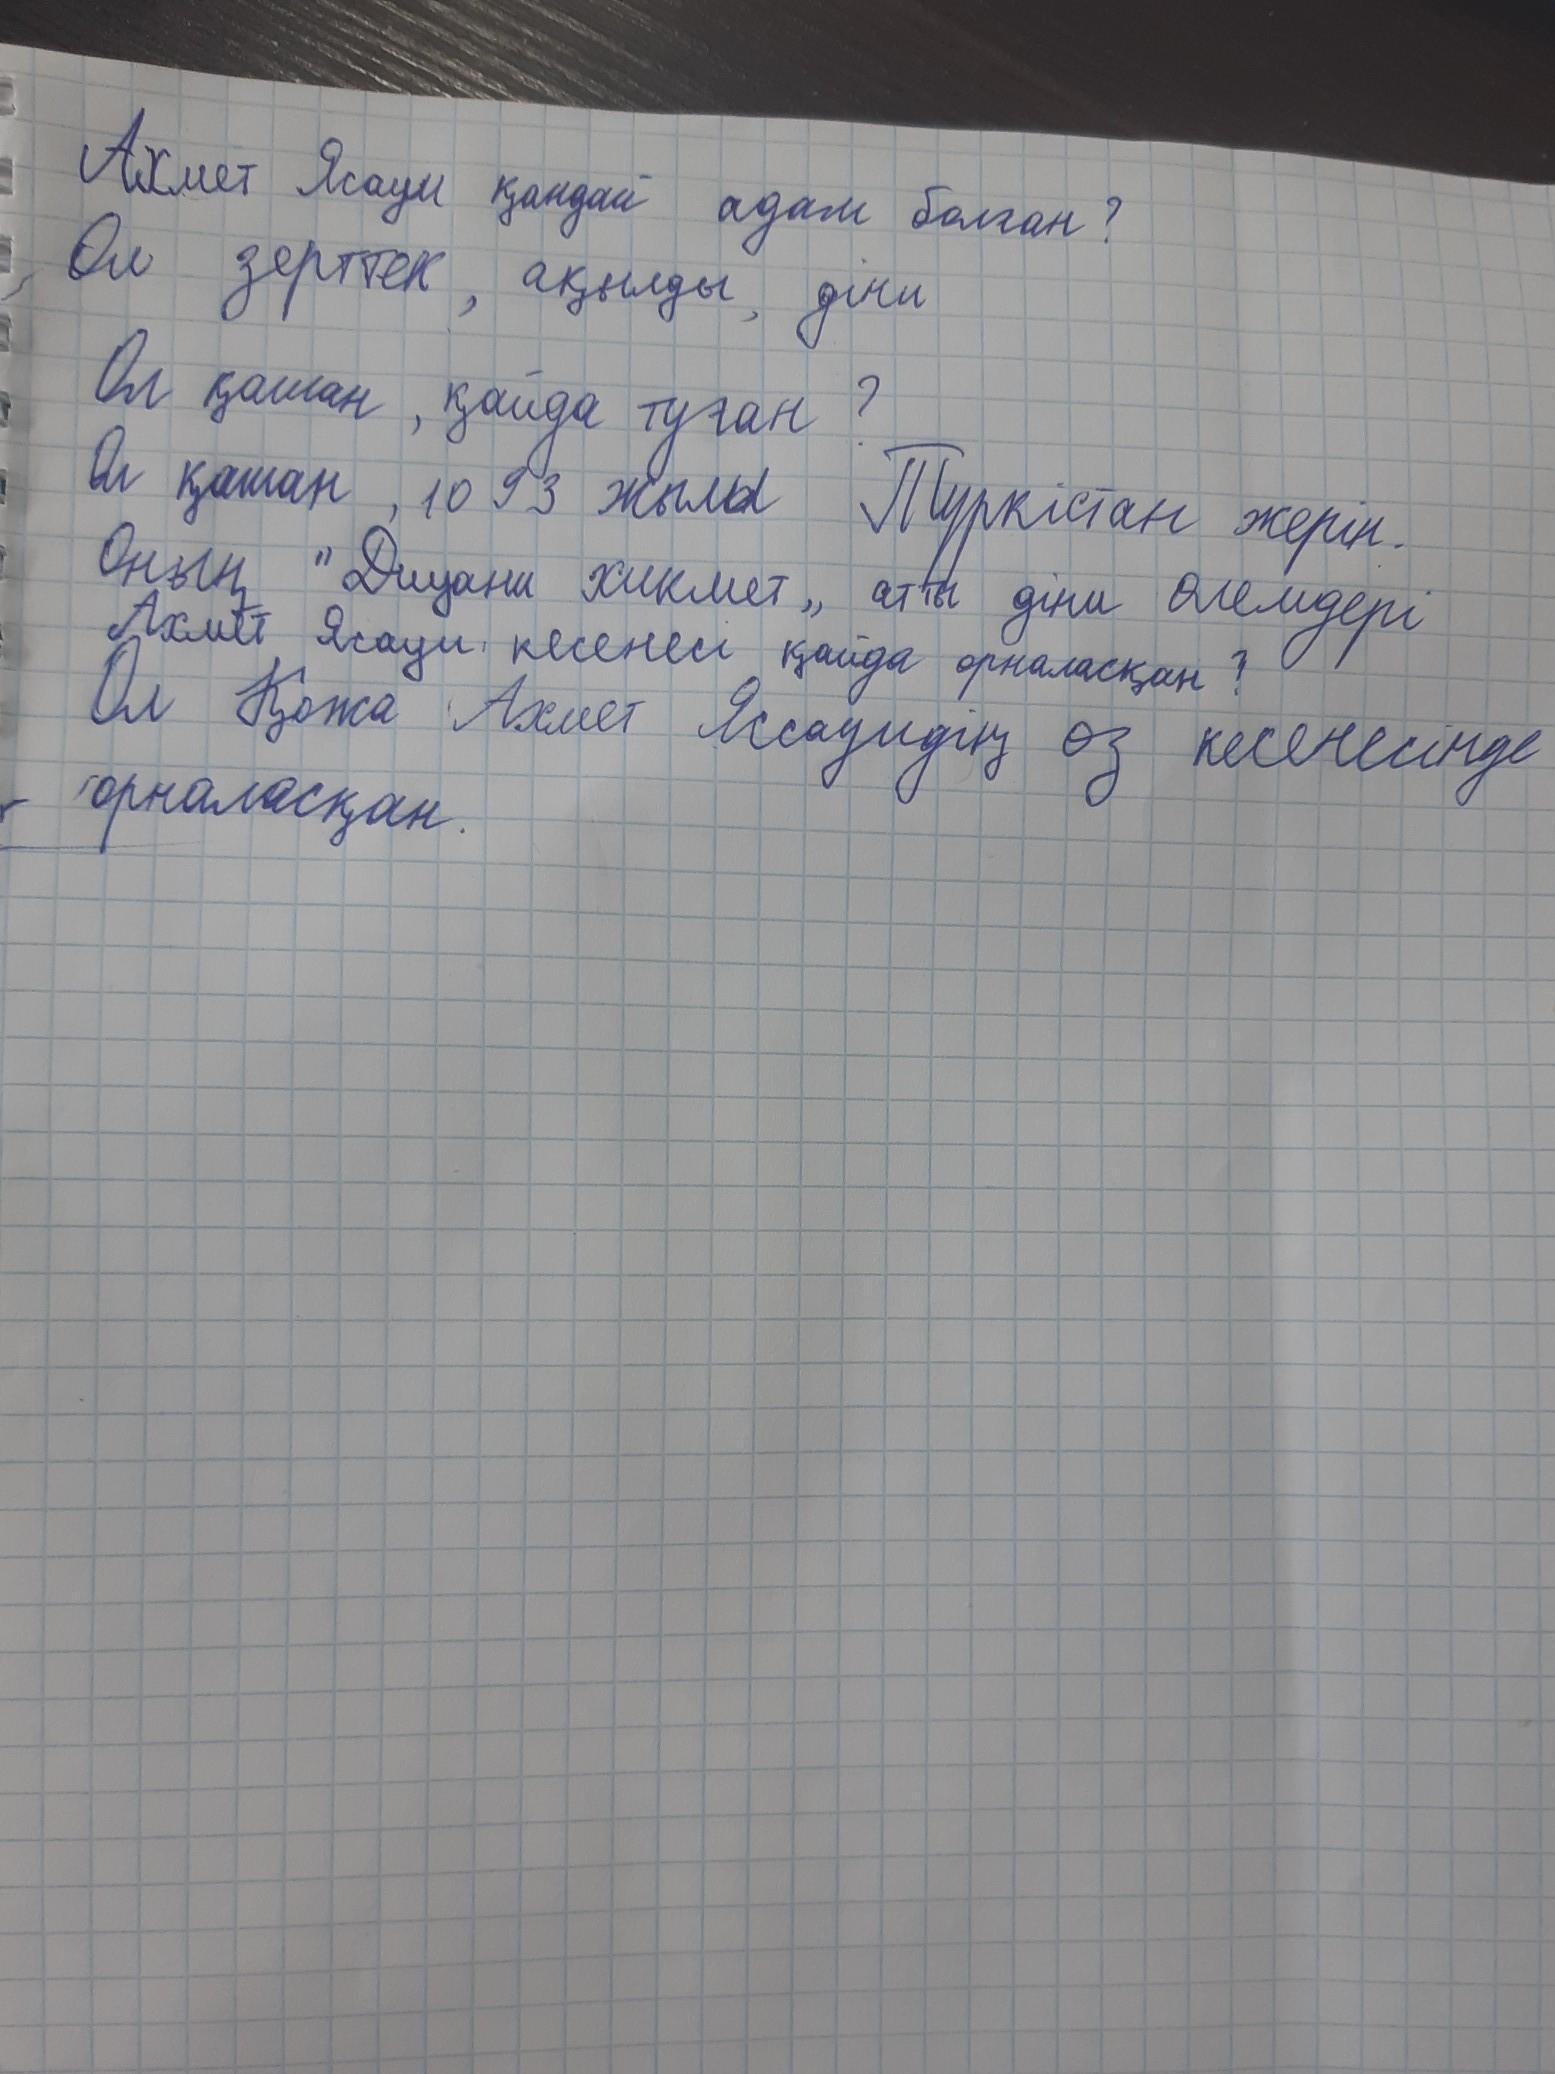 Ахмет Ясауи қандай адам болған?
Ол зерттек, ақылды, діни
Ол қашан, қайда туған?
Ол қашан, 1093 жылы Түркістан жерін.
Оның "Диуани хикмет„ атты діни өлемдері
Ахмет Ясауи кесенесі қайда орналасқан?
Ол Қожа Ахмет Яссауидің өз кесенесінде
орналасқан.